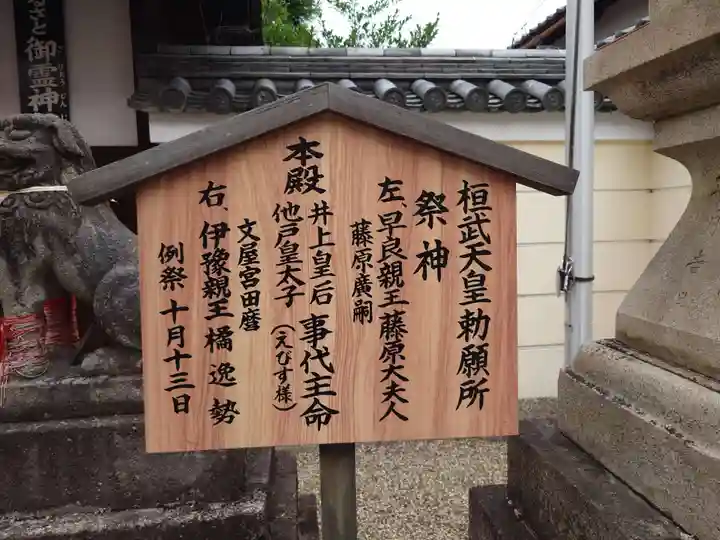 桓武天皇勅願所
祭神
左、早良親王藤原大夫人
藤原廣嗣
本殿 井上皇后 事代主命
他戸皇太子 (えびす様)
文屋宮田麿
右、伊豫親王橘逸勢
例祭 十月十三日
るさと御霊神